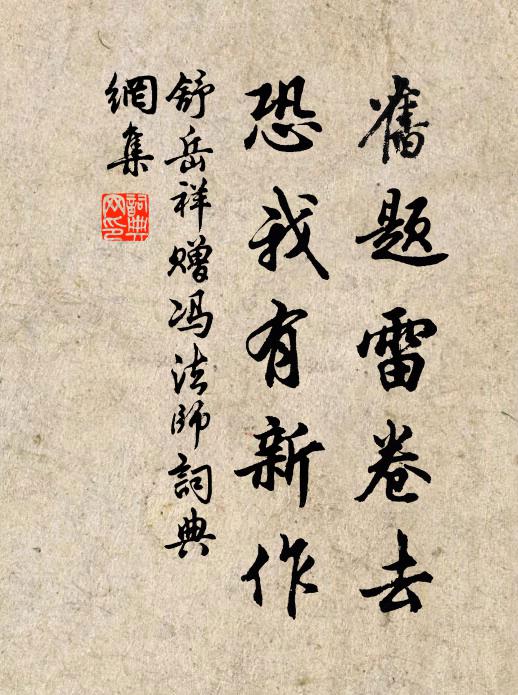 舊題雷卷去
恐我有新作
舒岳祥赠冯法師詞典
網集
詞典网印